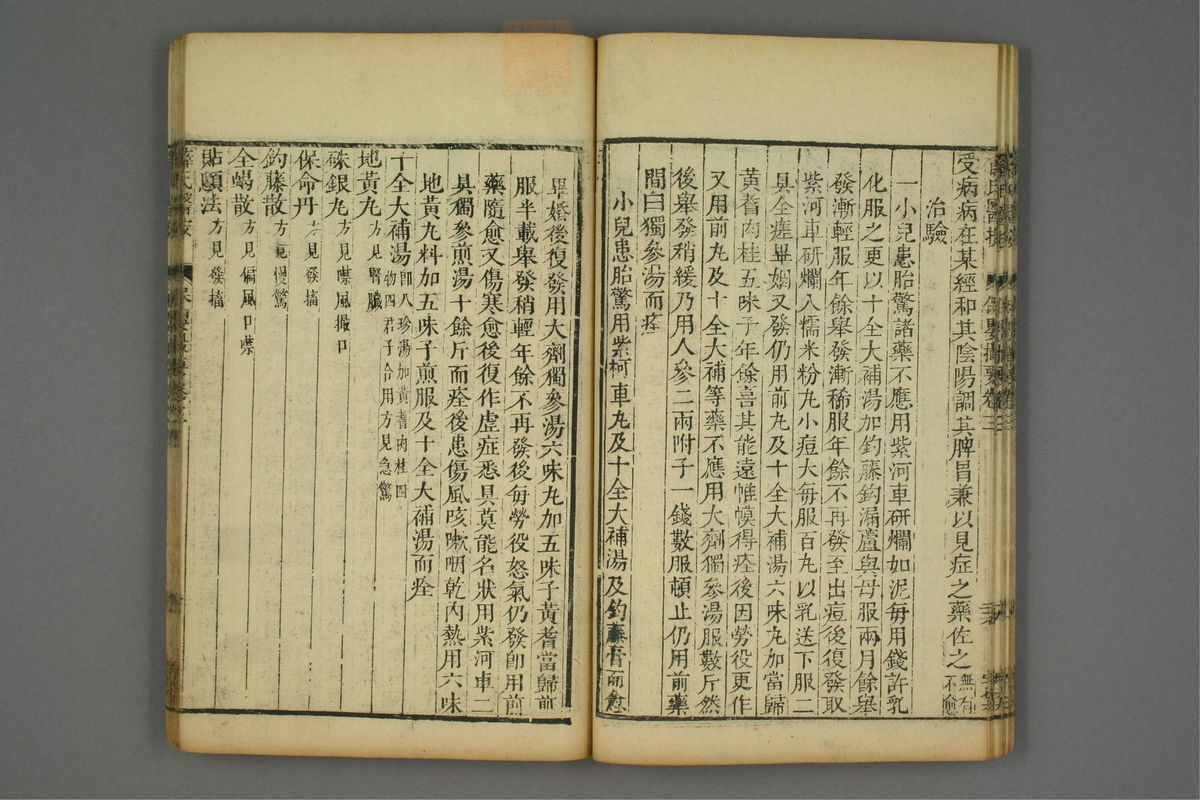 受病病在某經和其陰陽調其脾胃兼以見症之藥佐之無有不愈
治驗
一小兒患胎驚諸藥不應用紫河車研爛如泥每用錢許乳
化服之更以十全大補湯加釣藤鈎漏蘆與母服兩月餘舉
發漸輕服年餘舉發漸稀服年餘不再發至出痘後復發取
紫河車研爛入糯米粉丸小痘大每服百丸以乳送下服二
具全瘥畢姻又發仍用前丸及十全大補湯六味丸加當歸
黃耆肉桂五味子年餘喜其能遠帷幙得痊後因勞役更作
又用前丸及十全大補等藥不應用大劑獨參湯服數斤然
後舉發稍緩乃用人參二兩附子一錢數服頓止仍用前藥
間曰獨參湯而痊
小兒患胎驚用紫河車丸及十全大補湯及釣藤膏而愈
畢婚後復發用大劑獨參湯六味丸加五味子黃耆當歸煎
服半載舉發稍輕年餘不再發後每勞役怒氣仍發卽用前
藥隨愈又傷寒愈後復作虛症悉具莫能名狀用紫河車二
具獨參煎湯十餘斤而痊後患傷風咳嗽咽乾內熱用六味
地黃丸料加五味子煎服及十全大補湯而痊
十全大補湯卽八珍湯加黃耆肉桂四物四君子合用方見急驚
地黃丸方見腎臟
硃銀丸方見噤風撮口
保命丹方見發搐
釣藤散方見慢驚
全蝎散方見偏風口噤
貼顖法方見發搐